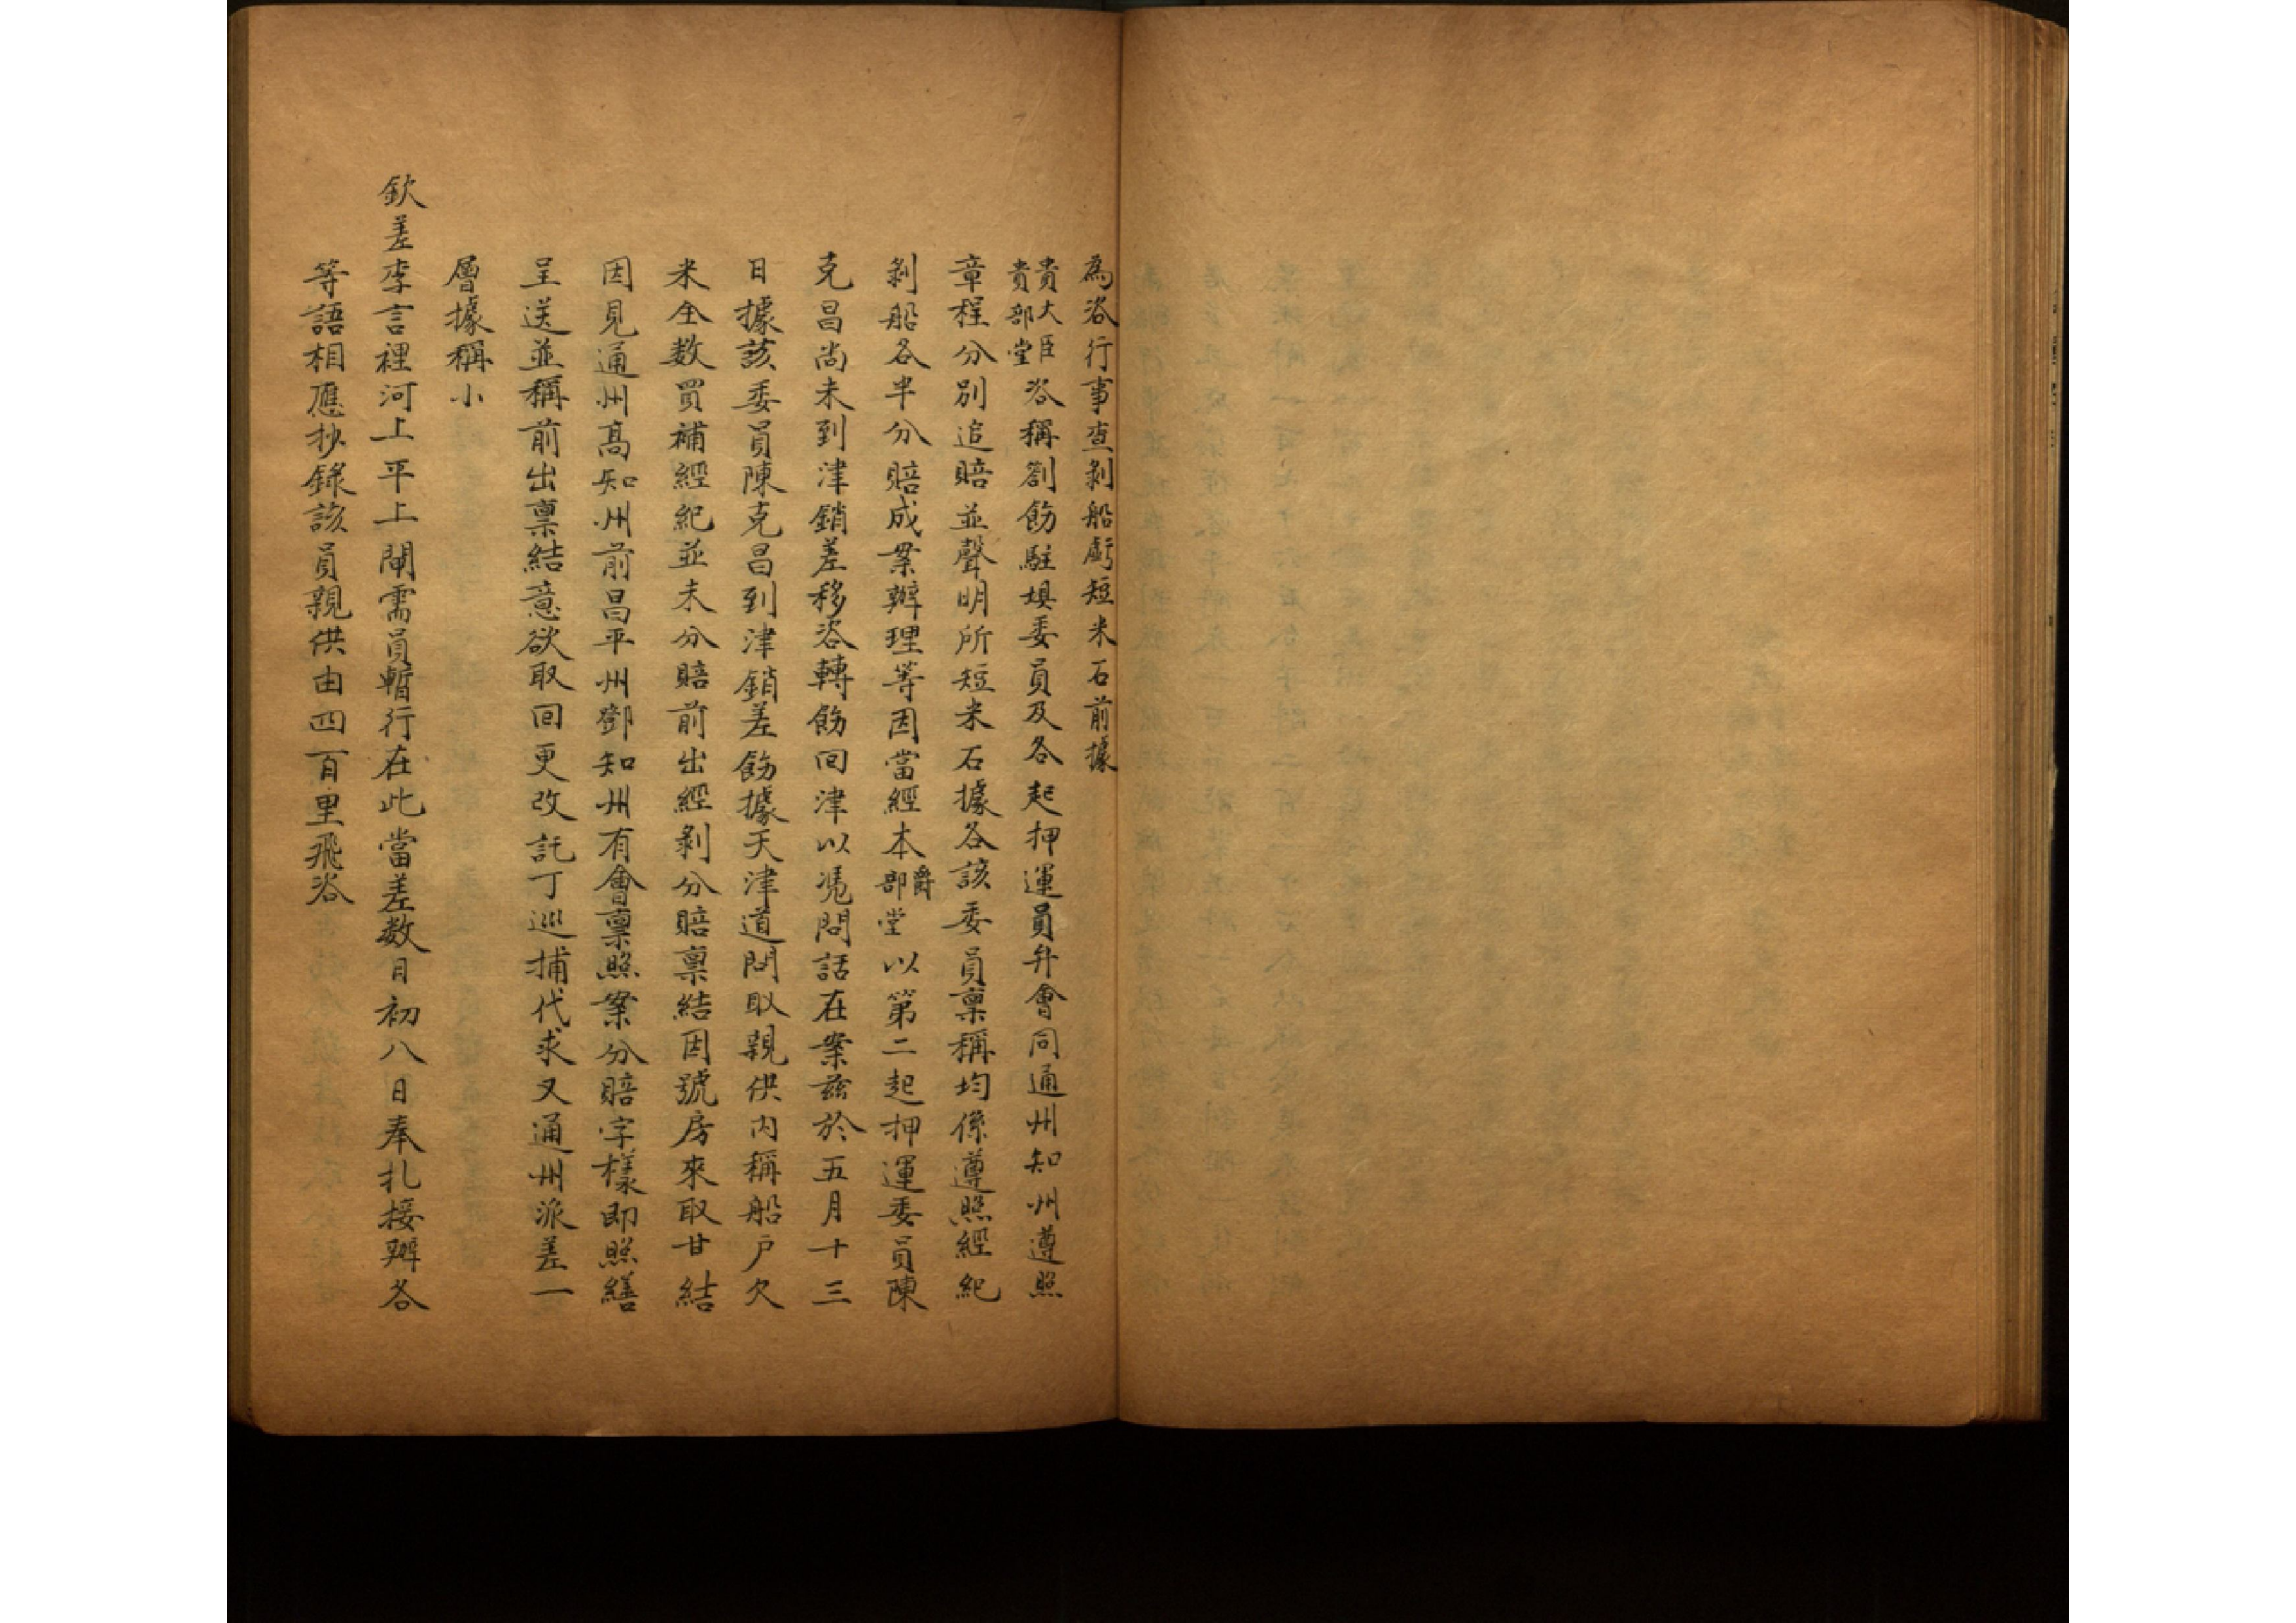 為咨行事查剝船虧短米石前據
貴大臣
貴部堂咨稱劄飭駐埧委員及各起押運員弁會同通州知州遵照
章程分別追賠並聲明所短米石據各該委員稟稱均係遵照經紀
剝船各半分賠成案辦理等因當經本爵部堂以第二起押運委員陳
克昌尚未到津銷差移咨轉飭囘津以凴問話在案茲於五月十三
日據該委員陳克昌到津銷差飭據天津道問取親供内稱船户欠
米全数買補經紀並未分賠前出經剝分賠稟結因號房來取甘結
因見通州高知州前昌平州鄧知州有會稟照案分賠字樣即照繕
呈送並稱前出稟結意欲取囘更改託丁巡捕代求又通州派差一
層據稱小
欽差李言裡河上平上閘需員暫行在此當差数月初八日奉札接辦各
等語相應抄錄該員親供由四百里飛咨